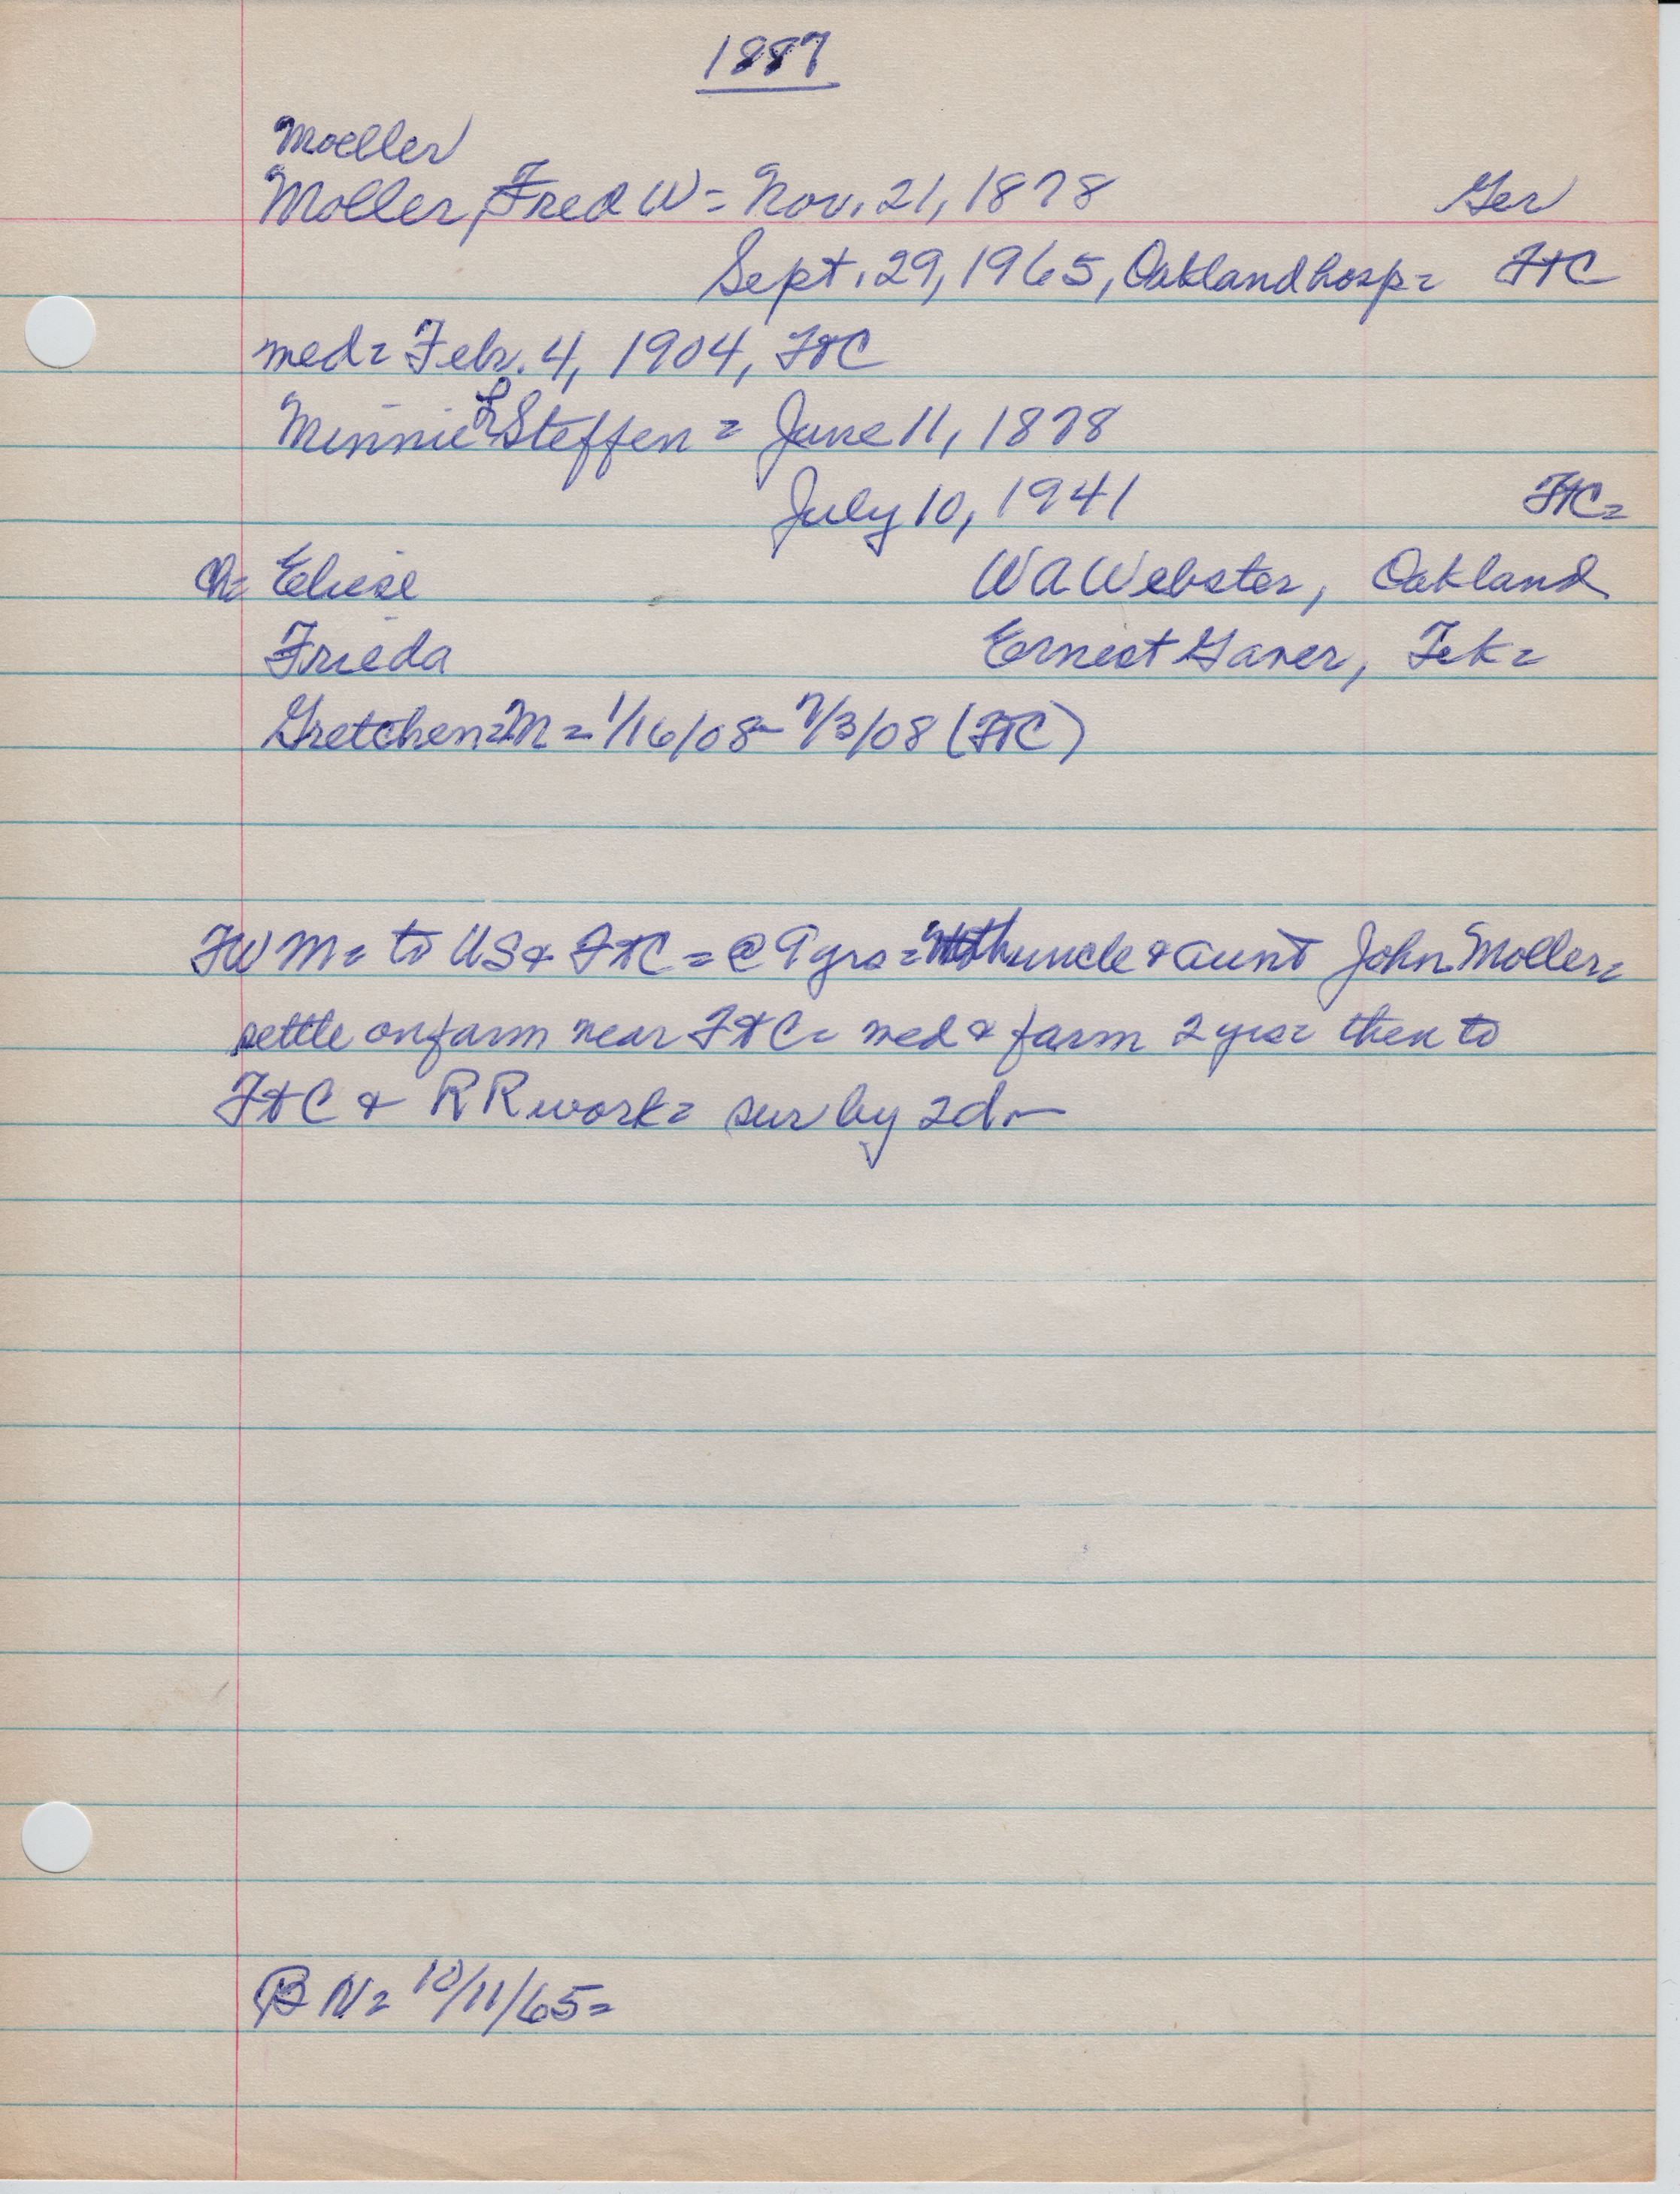 1887
Moeller
Moller, Fred W = Nov. 21, 1878 Ger
Sept. 29, 1965, Oakland hosp = FtC
med = Febr. 4, 1904, FtC
Minnie L Steffen = June 11, 1878
July 10, 1941 FtC =
Ch = Eliese W A Webster, Oakland
Frieda Ernest Gaver, Tek =
Gretchen = M = 1/16/08 - 7/3/08 (FtC)
FWM = to US & FtC = @ 9 yrs = with uncle & aunt John Moller =
settle on farm near FtC = med & farm 2 yrs = then to
FtC & RR work = sur by 2d -
BN = 10/11/65 =